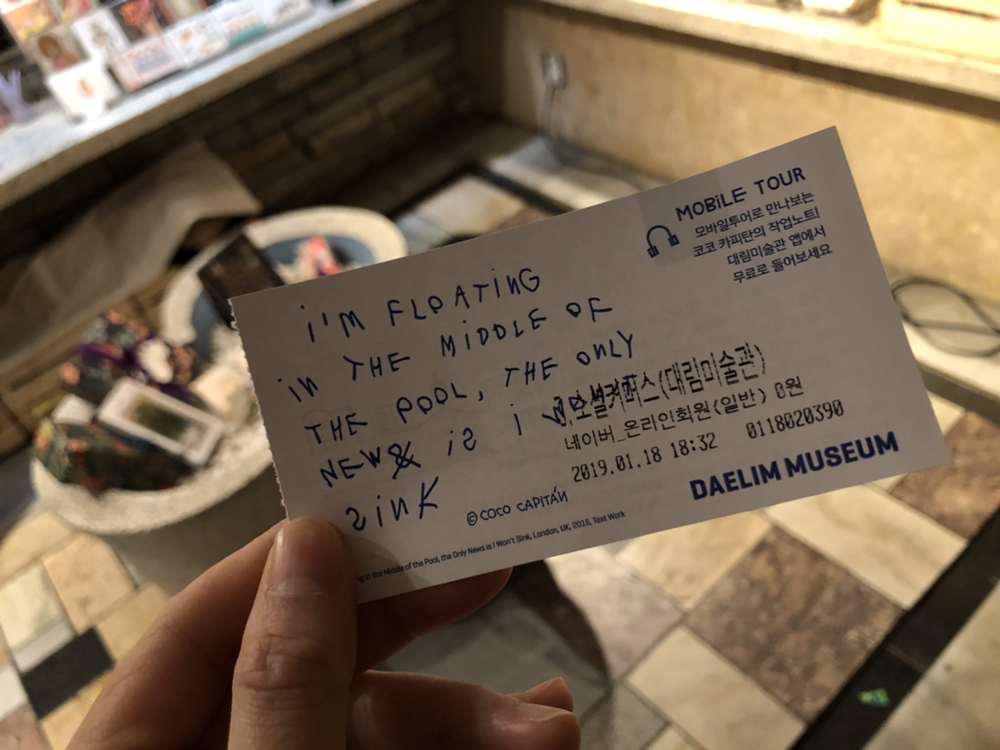 MOBiLE TOUR
모바일투어로 만나보는
코코 카피탄의 작업노트!
대림미술관 앱에서
무료로 들어보세요
i'M FLOATiNG
iN THE MiDDLE OF
THE POOL, THE ONLY
NEWS iS i WON'T
SiNK
소셜커머스(대림미술관)
네이버_온라인회원(일반) 0원
2019.01.18 18:32 0118020390
© COCO CAPITÁN
DAELIM MUSEUM
in the Middle of the Pool, the Only News is I Won't Sink, London, UK, 2016, Text Work